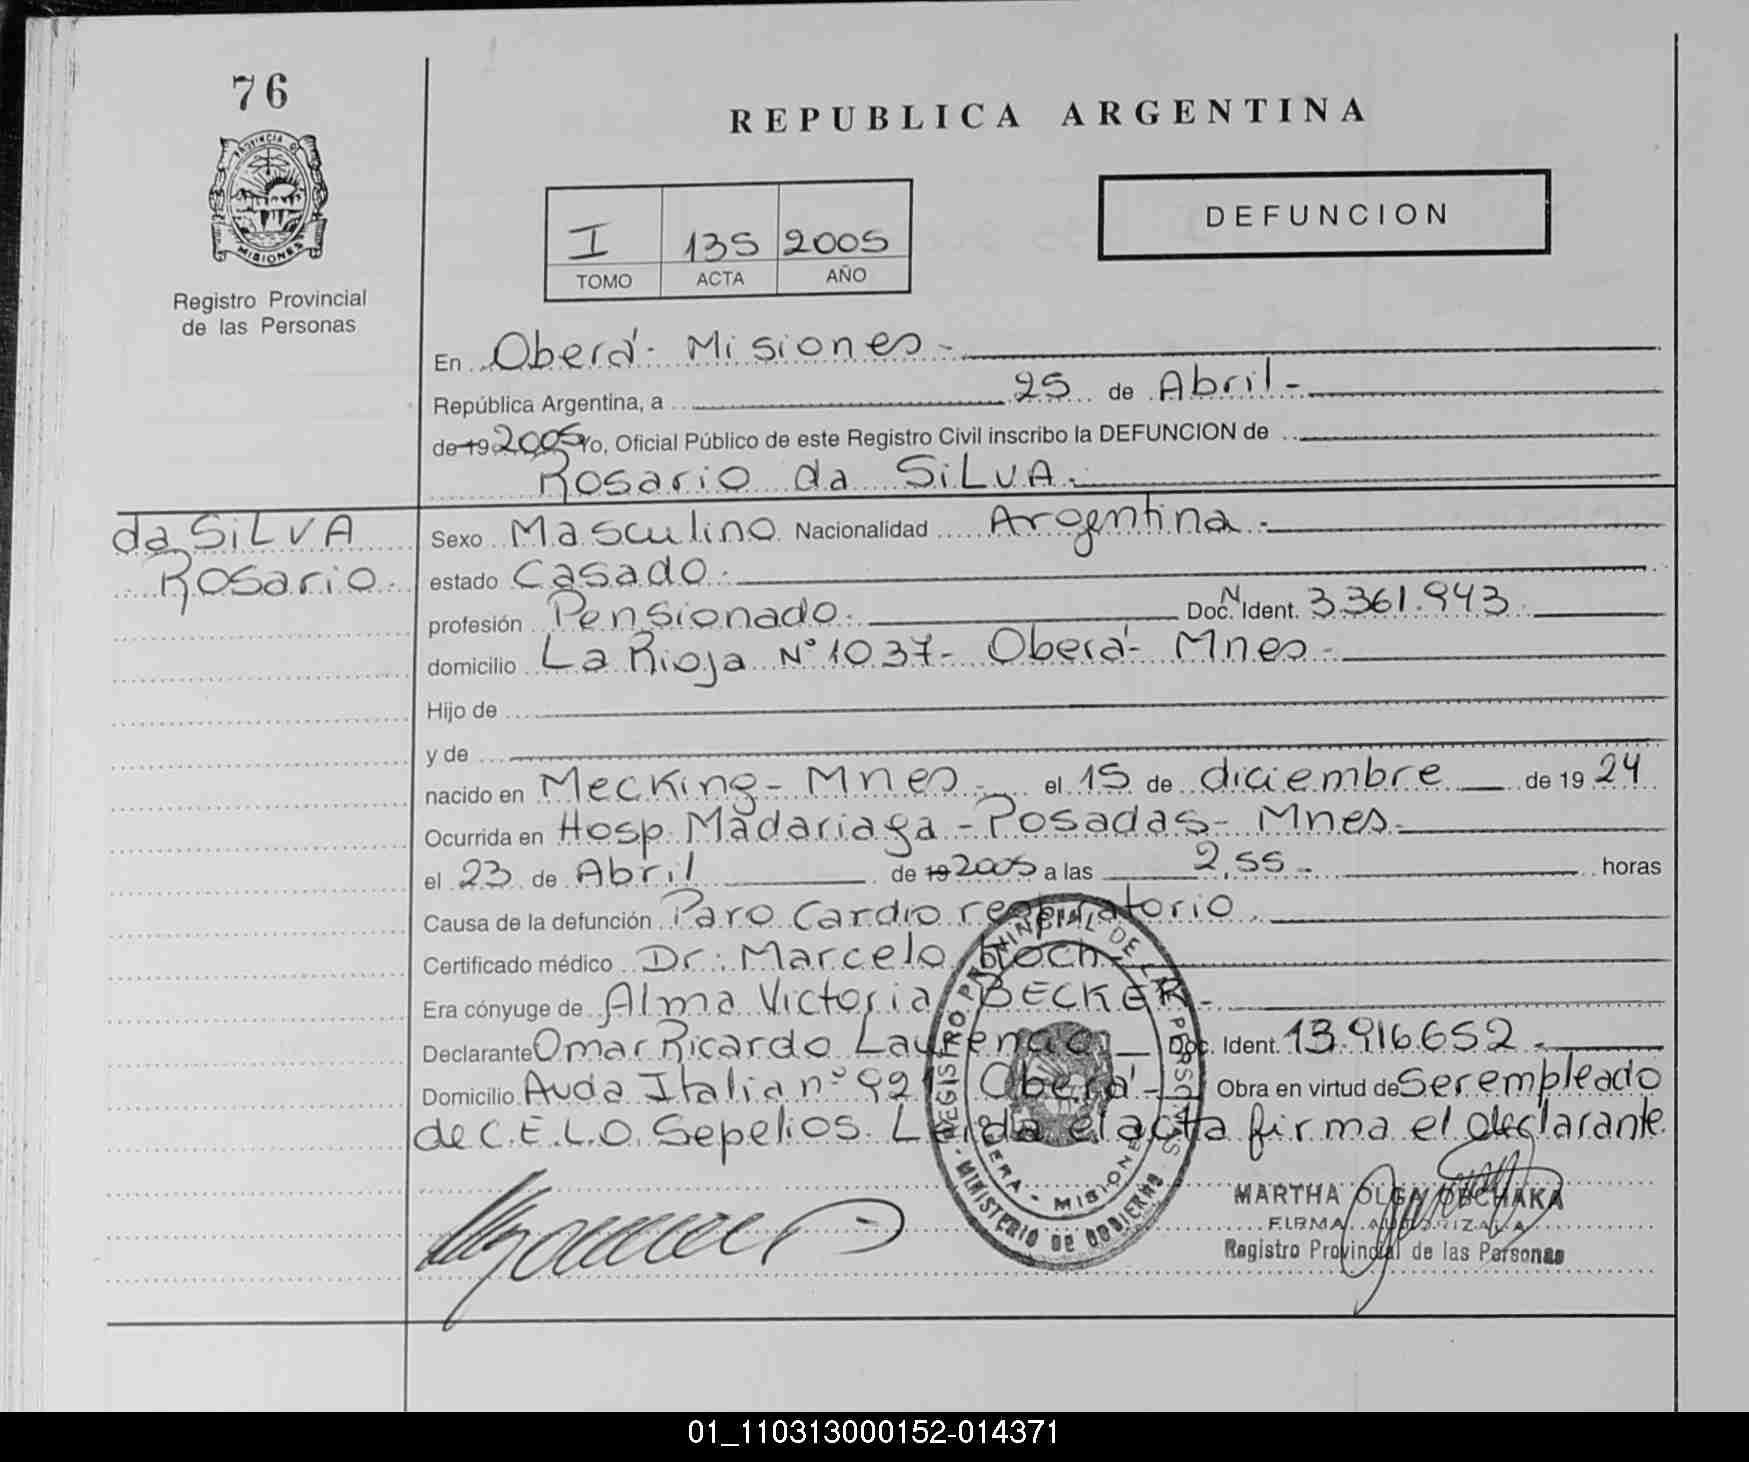 76
REPUBLICA ARGENTINA
PROVINCIA DE
MISIONES
Registro Provincial
de las Personas
DEFUNCION
I 135 2005
TOMO ACTA AÑO
En Oberá - Misiones -
República Argentina, a 25 de Abril -
de 19 2005 Yo, Oficial Público de este Registro Civil inscribo la DEFUNCION de
Rosario da SiLVA.
da SiLVA
Rosario.
Sexo Masculino Nacionalidad Argentina.-
estado Casado.
profesión Pensionado. Doc. N Ident. 3.361.943
domicilio La Rioja N° 1037 - Oberá - Mnes -
Hijo de
y de
nacido en Mecking - Mnes - el 15 de diciembre de 19 24
Ocurrida en Hosp. Madariaga - Posadas - Mnes.
el 23 de Abril de 19 2005 a las 2,55 - horas
Causa de la defunción Paro Cardio respiratorio.
Certificado médico Dr. Marcelo
Era cónyuge de Alma Victoria BECKER -
Declarante Omar Ricardo Doc. Ident. 13.916.652 -
Domicilio Avda Italia n° Oberá - Obra en virtud de Ser empleado
de C.E.L.O. Sepelios. Leída el acta firma el declarante.
REGISTRO PROVINCIAL DE LAS PERSONAS
OBERA - MISIONES
MINISTERIO DE GOBIERNO
MARTHA OLGA
FIRMA AUTORIZADA
Registro Provincial de las Personas
01_110313000152-014371